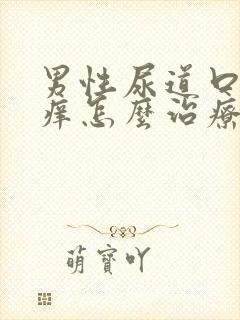 男性尿道口
痒怎麼治療
萌寶吖